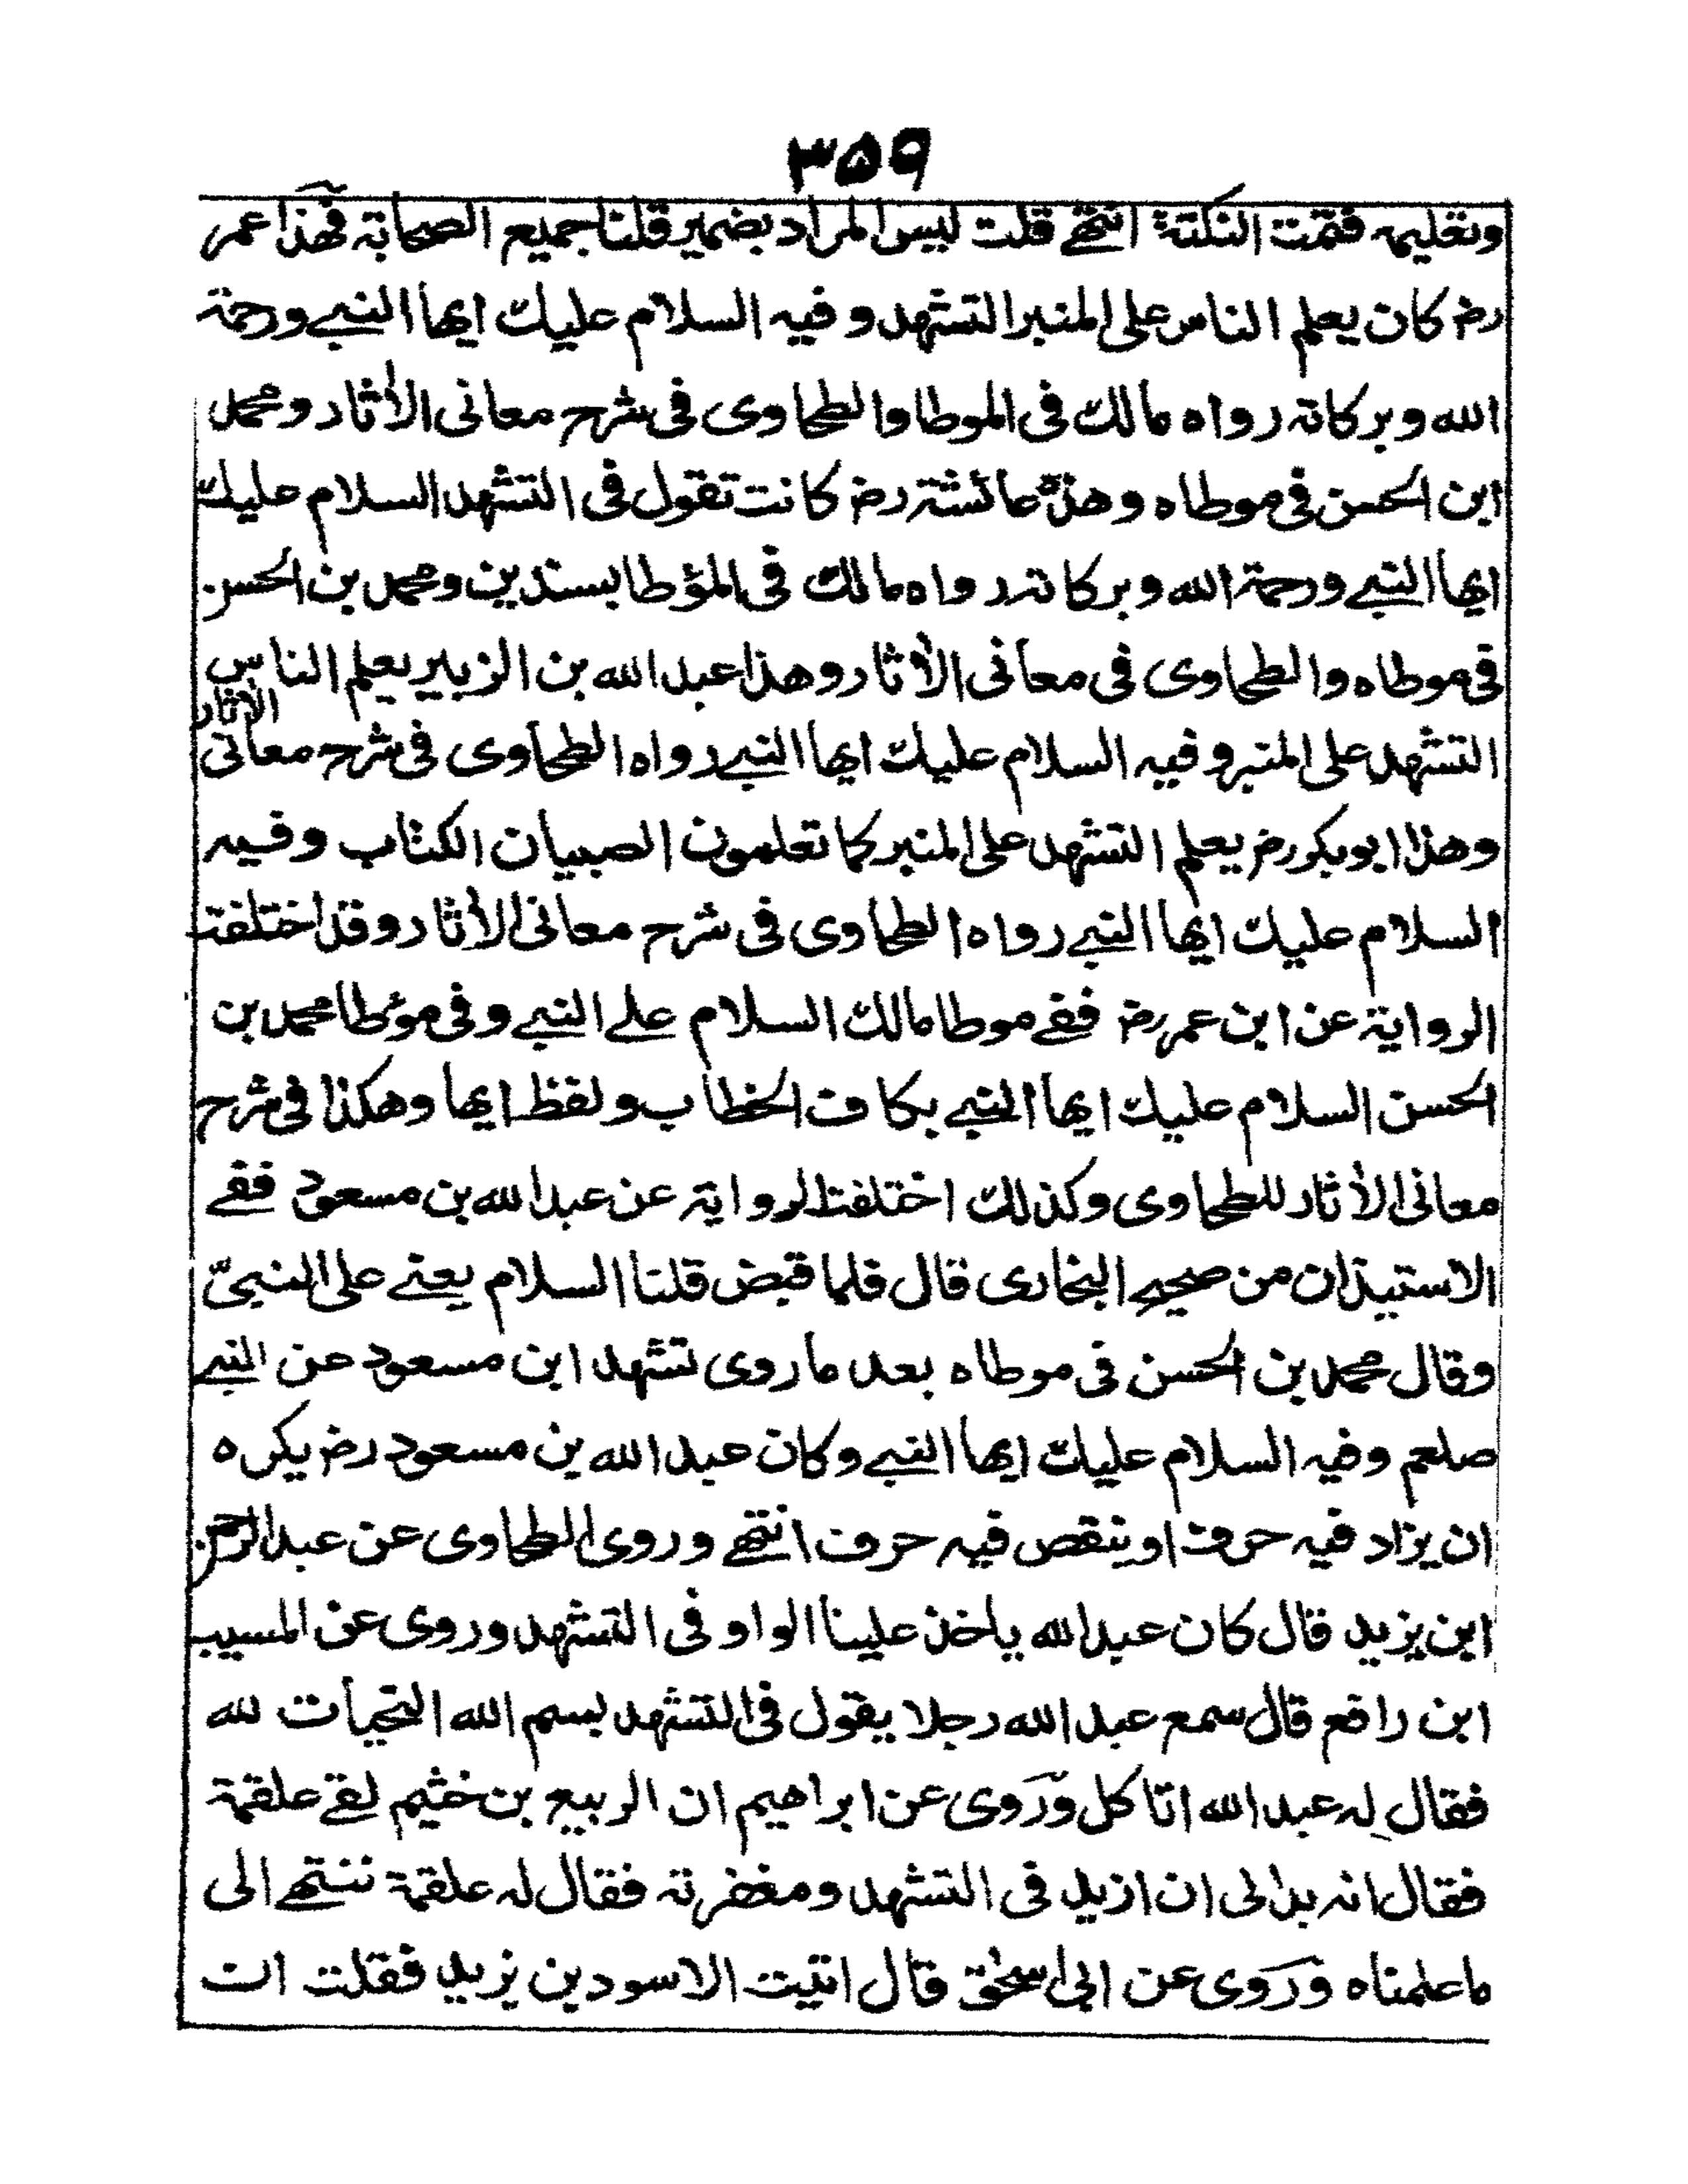 ۳۵۹
وتعليمه فتمت النكتة انتهے قلت ليس المراد بضمير قلنا جميع الصحابة فهذا عمر
رض كان يعلم الناس على المنبر التشهد و فيه السلام عليك ايها النبے ورحمة
الله وبركاته رواه مالك فى الموطا والطحاوى فى شرح معانى الأثار ومحمد
ابن الحسن فى موطاه وهذه عائشة رض كانت تقول فى التشهد السلام عليك
ايها النبے ورحمة الله وبركاته رواه مالك فى المؤطا بسندين ومحمد بن الحسن
فى موطاه والطحاوى فى معانى الأثار وهذا عبد الله بن الزبير يعلم الناس
التشهد على المنبر وفيه السلام عليك ايها النبے رواه الطحاوى فى شرح معانى الأثار
وهذا ابوبكر رض يعلم التشهد على المنبر كما تعلمون الصبيان الكتاب وفيه
السلام عليك ايها النبے رواه الطحاوى فى شرح معانى الأثار وقد اختلفت
الرواية عن ابن عمر رض ففے موطا مالك السلام علے النبے وفى مؤطا محمد بن
الحسن السلام عليك ايها النبے بكاف الخطاب ولفظ ايها وهكذا فى شرح
معانى الأثار للطحاوى وكذلك اختلفت الرواية عن عبد الله بن مسعود ففے
الاستيذان من صحيح البخارى قال فلما قبض قلنا السلام يعنے على النبىّ
وقال محمد بن الحسن فى موطاه بعد ما روى تشهد ابن مسعود عن النبے
صلعم وفيه السلام عليك ايها النبے وكان عبد الله بن مسعود رض يكره
ان يزاد فيه حرف او ينقص فيه حرف انتهے وروى الطحاوى عن عبد الرحمن
ابن يزيد قال كان عبد الله ياخذ علينا الواو فى التشهد وروى عن المسيب
ابن رافع قال سمع عبد الله رجلا يقول فى التشهد بسم الله التحيات لله
فقال له عبد الله اتاكل وروى عن ابراهيم ان الربيع بن خثيم لقے علقمة
فقال انه بدا لى ان ازيد فى التشهد ومغفرته فقال له علقمة ننتهے الى
ما علمناه وروى عن ابى اسحٰق قال اتيت الاسود بن يزيد فقلت ان